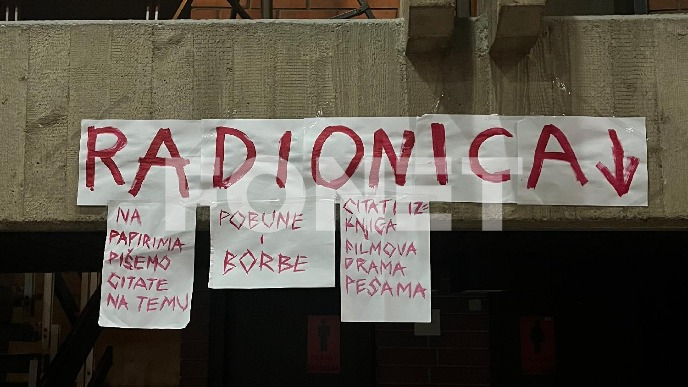 RADIONICA ↓
NA
PAPIRIMA
PIŠEMO
CITATE
NA TEMU
POBUNE
I
BORBE
CITATI IZ=
KNJIGA
FILMOVA
DRAMA
PESAMA
FONET